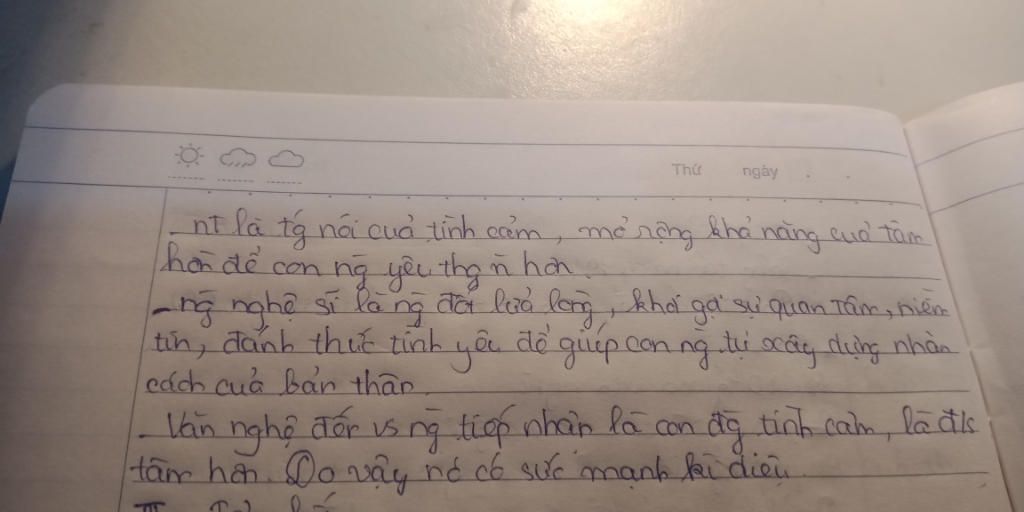 Thứ ngày
- nt là tg nói của tình cảm, mở rộng khả năng của tâm
hồn để con ng yêu thg n hơn.
- ng nghệ sĩ là ng đốt lửa lòng, khơi gợi sự quan tâm, niềm
tin, đánh thức tình yêu để giúp con ng tự xây dựng nhân
cách của bản thân
- Văn nghệ đối vs ng tiếp nhận là con đg tình cảm, là đk
tâm hồn. Do vậy nó có sức mạnh kì diệu